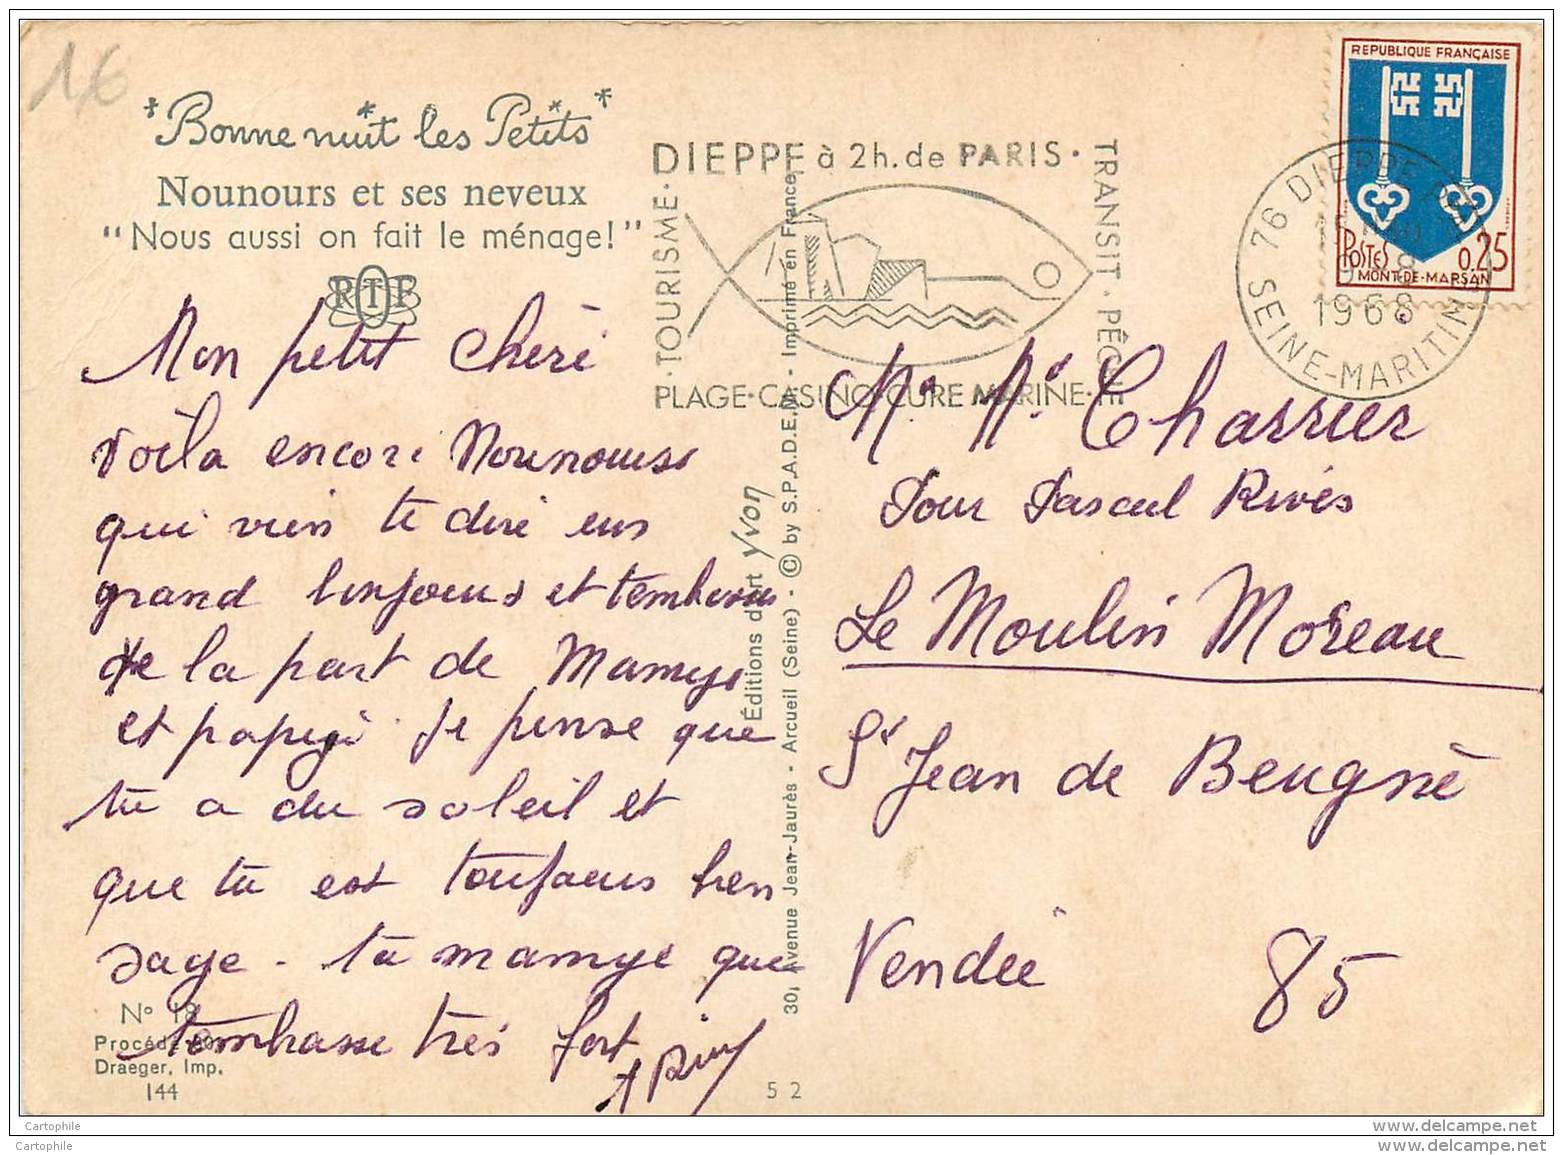 16
Bonne nuit les Petits
Nounours et ses neveux
"Nous aussi on fait le ménage!"
RTF
DIEPPE à 2h. de PARIS.
TOURISME.
TRANSIT. PÊCHE
PLAGE. CASINO. CURE MARINE.
REPUBLIQUE FRANÇAISE
POSTES 0,25
MONT-DE-MARSAN
76 DIEPPE
1968
SEINE-MARITIME
Mon petit chéri
voila encore Nounours
qui vien te dire un
grand bonjour et tembrasse
de la part de Mamye
et papiye je pense que
tu a du soleil et
que tu est toujours bien
sage - ta mamye que
tembrasse tres fort
A Rivy
Mr Me Charrier
Pour Pascal Rivés
Le Moulin Moreau
St Jean de Beugné
Vendée 85
Éditions d'art Yvon
30, Avenue Jean-Jaurès - Arcueil (Seine) - © by S.P.A.D.E.M. - Imprimé en France
N° 18
Procédé
Draeger, Imp.
144
5 2
Cartophile
www.delcampe.net
Cartophile
www.delcampe.net